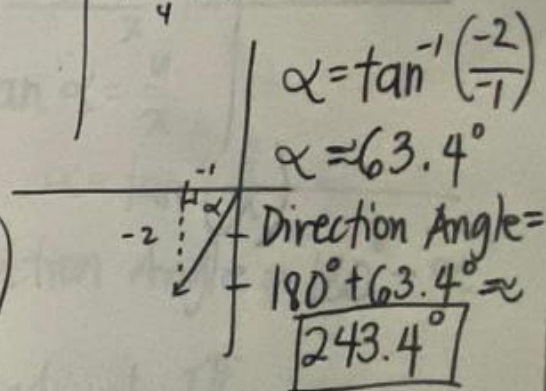 4
α = tan⁻¹(-2/-1)
α ≈ 63.4°
-1
α
-2
Direction Angle=
180° + 63.4° ≈
243.4°